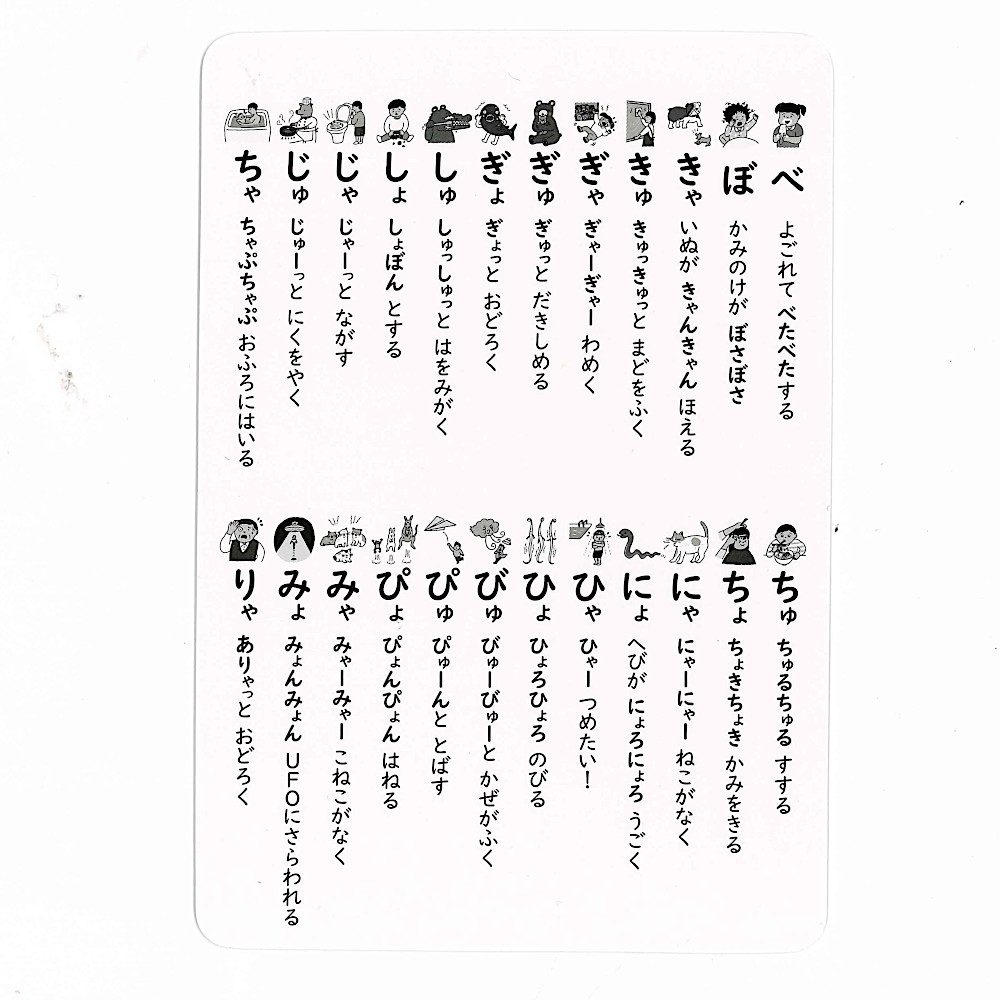 べ よごれて べたべたする
ぼ かみのけが ぼさぼさ
きゃ いぬが きゃんきゃん ほえる
きゅ きゅっきゅっと まどをふく
ぎゃ ぎゃーぎゃー わめく
ぎゅ ぎゅっと だきしめる
ぎょ ぎょっと おどろく
しゅ しゅっしゅっと はをみがく
しょ しょぼん とする
じゃ じゃーっと ながす
じゅ じゅーっと にくをやく
ちゃ ちゃぷちゃぷ おふろにはいる
ちゅ ちゅるちゅる すする
ちょ ちょきちょき かみをきる
にゃ にゃーにゃー ねこがなく
にょ へびが にょろにょろ うごく
ひゃ ひゃー つめたい!
ひょ ひょろひょろ のびる
びゅ びゅーびゅーと かぜがふく
ぴゅ ぴゅーんと とばす
ぴょ ぴょんぴょん はねる
みゃ みゃーみゃー こねこがなく
みょ みょんみょん UFOにさらわれる
りゃ ありゃっと おどろく